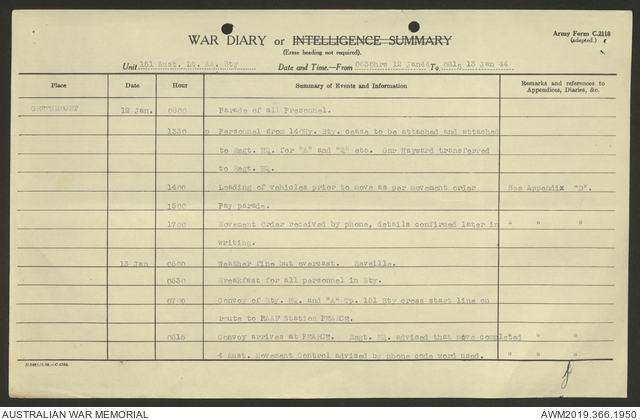 WAR DIARY or INTELLIGENCE SUMMARY
(Erase heading not required).
Army Form C.2118
(adapted.)
Unit 151 Aust. Lt. AA. Bty Date and Time.—From 0630hrs 12 Jan44 To 0815 13 Jan 44
Place Date Hour Summary of Events and Information Remarks and references to Appendices, Diaries, &c.
12 Jan. 0800 Parade of all Presonnel.
1330 Personnel from Hy. Bty. cease to be attached and attached
to Regt. HQ. for "A" and "Q" etc. Gnr Hayward transferred
to Regt. HQ.
1400 Loading of vehicles prior to move as per movement order See Appendix "D".
1500 Pay parade.
1700 Movement Order received by phone, details confirmed later in " " "
writing.
13 Jan 0500 Weather fine but overcast. Reveille.
0530 Breakfast for all personnel in Bty.
0700 Convoy of Bty. HQ. and "A" Tp. 151 Bty cross start line on
route to RAAF Station PEARCE.
0815 Convoy arrives at PEARCE. Regt. HQ. advised that move completed " "
4 Aust. Movement Control advised by phone code word used. " "
AUSTRALIAN WAR MEMORIAL AWM2019.366.1950